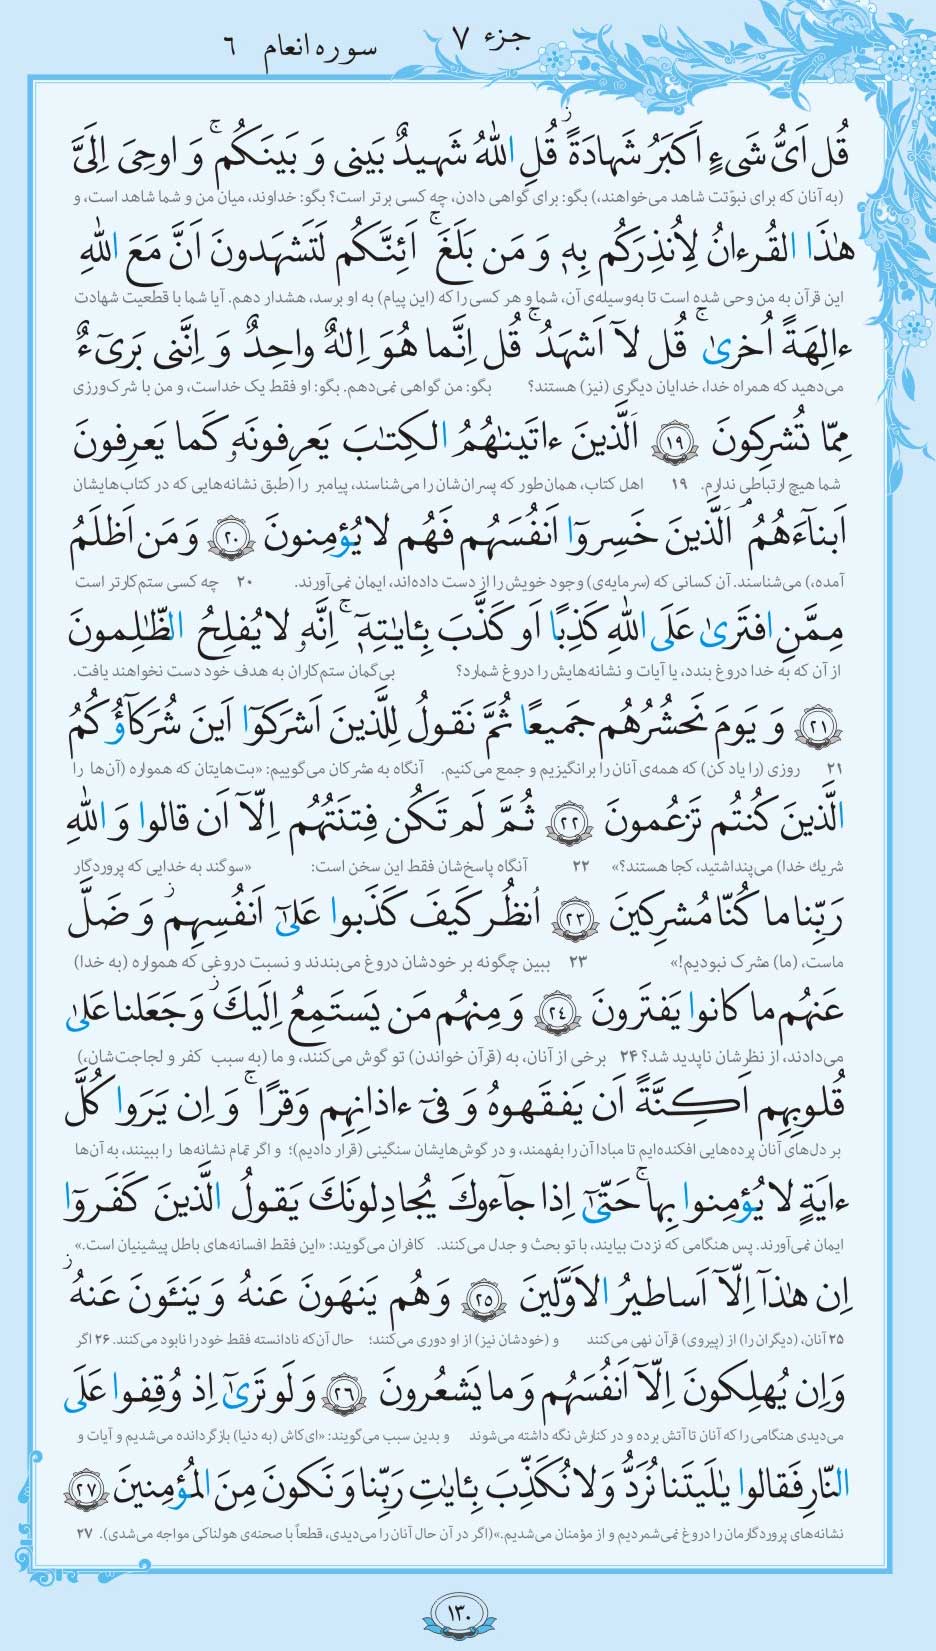 جزء ۷
سوره انعام ٦
قُل اَىُّ شَىءٍ اَكبَرُ شَهادَةً ۖ قُلِ اللّٰهُ شَهيدٌ بَينى وَ بَينَكُم ۚ وَ اوحِىَ اِلَىَّ
(به آنان که برای نبوّتت شاهد می‌خواهند،) بگو: برای گواهی دادن، چه کسی برتر است؟ بگو: خداوند، میان من و شما شاهد است، و
هٰذَا القُرءانُ لِاُنذِرَكُم بِهٖ وَ مَن بَلَغَ ۚ اَئِنَّكُم لَتَشهَدونَ اَنَّ مَعَ اللّٰهِ
این قرآن به من وحی شده است تا به‌وسیله‌ی آن، شما و هر کسی را که (این پیام) به او برسد، هشدار دهم. آیا شما با قطعیت شهادت
ءالِهَةً اُخرىٰ ۚ قُل لآ اَشهَدُ ۚ قُل اِنَّما هُوَ اِلٰهٌ واحِدٌ وَ اِنَّنى بَرىءٌ
می‌دهید که همراه خدا، خدایان دیگری (نیز) هستند؟ بگو: من گواهی نمی‌دهم. بگو: او فقط یک خداست، و من با شرک‌ورزی
مِمّا تُشرِكونَ ﴿١٩﴾ اَلَّذينَ ءاتَينٰهُمُ الكِتٰبَ يَعرِفونَهٗ كَما يَعرِفونَ
شما هیچ ارتباطی ندارم. ۱۹ اهل کتاب، همان‌طور که پسران‌شان را می‌شناسند، پیامبر را (طبق نشانه‌هایی که در کتاب‌هایشان
اَبنآءَهُمُ ۘ اَلَّذينَ خَسِروٓا اَنفُسَهُم فَهُم لا يُؤمِنونَ ﴿٢٠﴾ وَ مَن اَظلَمُ
آمده،) می‌شناسند. آن کسانی که (سرمایه‌ی) وجود خویش را از دست داده‌اند، ایمان نمی‌آورند. ۲۰ چه کسی ستم‌کارتر است
مِمَّنِ افتَرىٰ عَلَى اللّٰهِ كَذِبًا اَو كَذَّبَ بِـٔايٰتِهٖٓ ۚ اِنَّهٗ لا يُفلِحُ الظّٰلِمونَ
از آن که به خدا دروغ بندد، یا آیات و نشانه‌هایش را دروغ شمارد؟ بی‌گمان ستم‌کاران به هدف خود دست نخواهند یافت.
﴿٢١﴾ وَ يَومَ نَحشُرُهُم جَميعًا ثُمَّ نَقولُ لِلَّذينَ اَشرَكوٓا اَينَ شُرَكآؤُكُمُ
۲۱ روزی (را یاد کن) که همه‌ی آنان را برانگیزیم و جمع می‌کنیم. آنگاه به مشرکان می‌گوییم: «بت‌هایتان که همواره (آن‌ها را
الَّذينَ كُنتُم تَزعُمونَ ﴿٢٢﴾ ثُمَّ لَم تَكُن فِتنَتُهُم اِلّآ اَن قالوا وَ اللّٰهِ
شریك خدا) می‌پنداشتید، کجا هستند؟» ۲۲ آنگاه پاسخ‌شان فقط این سخن است: «سوگند به خدایی که پروردگار
رَبِّنا ما كُنّا مُشرِكينَ ﴿٢٣﴾ اُنظُر كَيفَ كَذَبوا عَلىٰٓ اَنفُسِهِم ۖ وَ ضَلَّ
ماست، (ما) مشرک نبودیم!» ۲۳ ببین چگونه بر خودشان دروغ می‌بندند و نسبت دروغی که همواره (به خدا)
عَنهُم ما كانوا يَفتَرونَ ﴿٢٤﴾ وَ مِنهُم مَن يَستَمِعُ اِلَيكَ ۖ وَ جَعَلنا عَلىٰ
می‌دادند، از نظرشان ناپدید شد؟ ۲۴ برخی از آنان، به (قرآن خواندن) تو گوش می‌کنند، و ما (به سبب کفر و لجاجت‌شان،)
قُلوبِهِم اَكِنَّةً اَن يَفقَهوهُ وَ فىٓ ءاذانِهِم وَقرًا ۚ وَ اِن يَرَوا كُلَّ
بر دل‌های آنان پرده‌هایی افکنده‌ایم تا مبادا آن را بفهمند، و در گوش‌هایشان سنگینی (قرار دادیم)؛ و اگر تمام نشانه‌ها را ببینند، به آن‌ها
ءايَةٍ لا يُؤمِنوا بِها ۚ حَتّىٰٓ اِذا جآءوكَ يُجادِلونَكَ يَقولُ الَّذينَ كَفَروٓا
ایمان نمی‌آورند. پس هنگامی که نزدت بیایند، با تو بحث و جدل می‌کنند. کافران می‌گویند: «این فقط افسانه‌های باطل پیشینیان است.»
اِن هٰذآ اِلّآ اَساطيرُ الاَوَّلينَ ﴿٢٥﴾ وَ هُم يَنهَونَ عَنهُ وَ يَنـَٔونَ عَنهُ ۖ
۲۵ آنان، (دیگران را) از (پیروی) قرآن نهی می‌کنند و (خودشان نیز) از او دوری می‌کنند؛ حال آن‌که نادانسته فقط خود را نابود می‌کنند. ۲۶ اگر
وَ اِن يُهلِكونَ اِلّآ اَنفُسَهُم وَ ما يَشعُرونَ ﴿٢٦﴾ وَ لَو تَرىٰٓ اِذ وُقِفوا عَلَى
می‌دیدی هنگامی را که آنان تا آتش برده و در کنارش نگه داشته می‌شوند و بدین سبب می‌گویند: «ای‌کاش (به دنیا) بازگردانده می‌شدیم و آیات و
النّارِ فَقالوا يٰلَيتَنا نُرَدُّ وَ لا نُكَذِّبَ بِـٔايٰتِ رَبِّنا وَ نَكونَ مِنَ المُؤمِنينَ ﴿٢٧﴾
نشانه‌های پروردگارمان را دروغ نمی‌شمردیم و از مؤمنان می‌شدیم.»(اگر در آن حال آنان را می‌دیدی، قطعاً با صحنه‌ی هولناکی مواجه می‌شدی). ۲۷
١٣٠